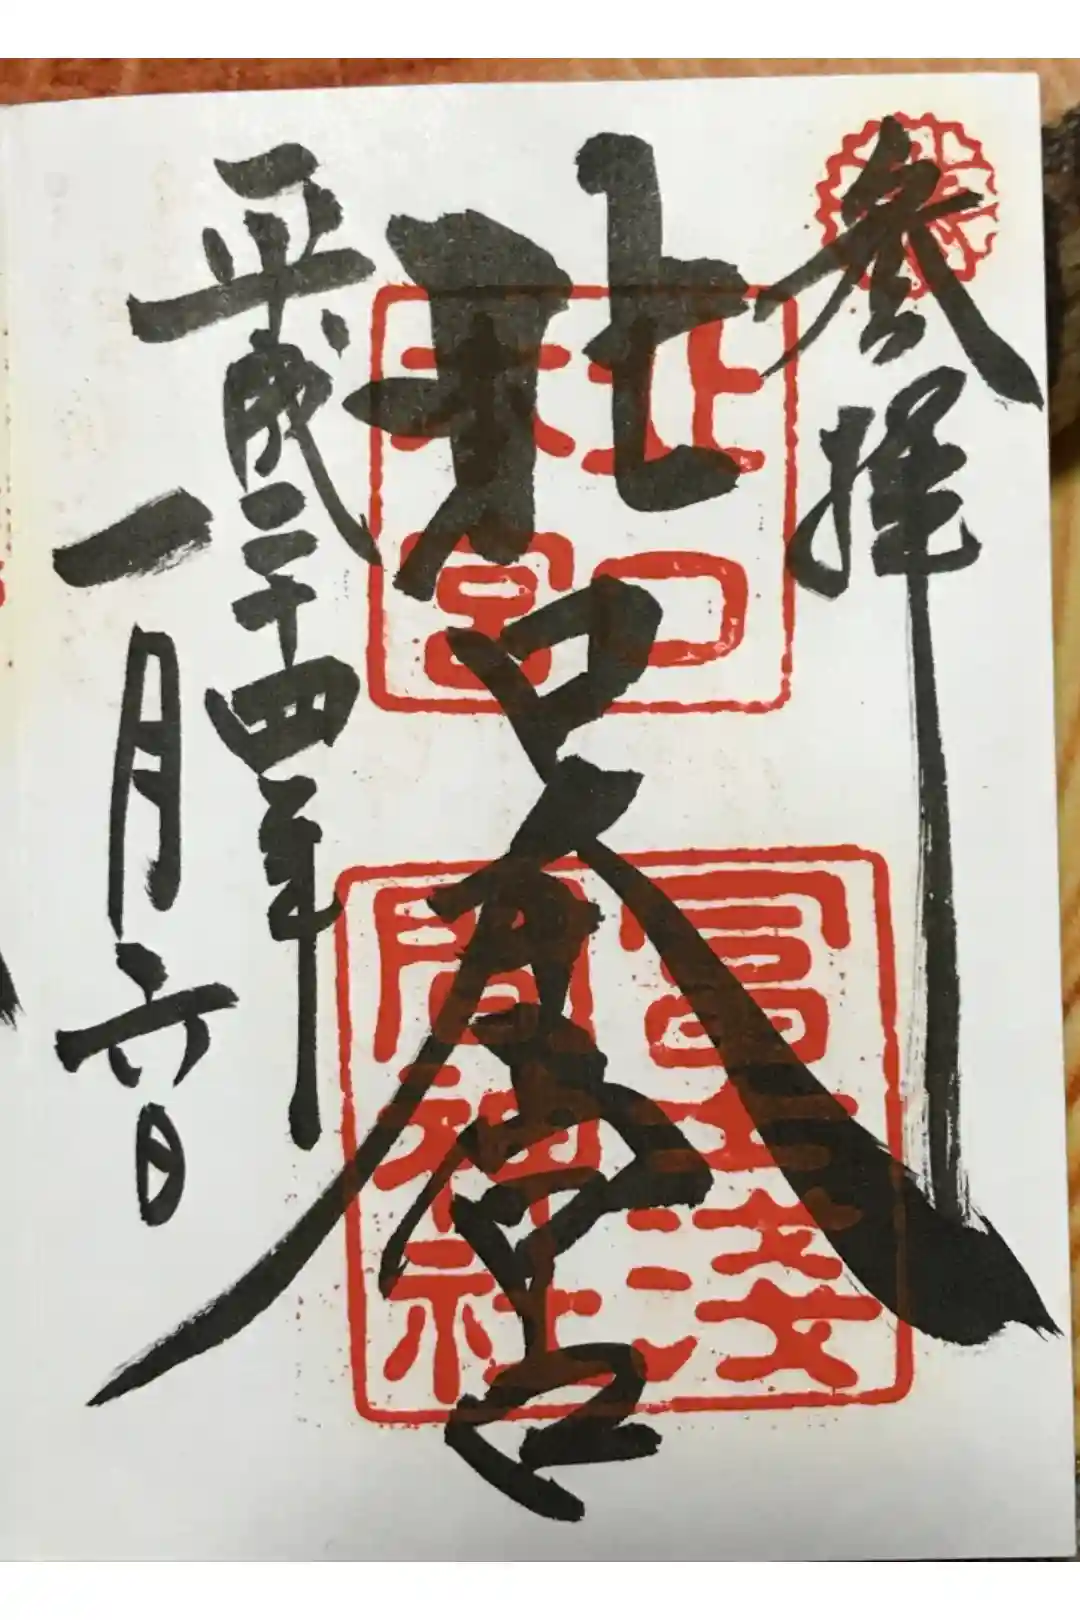 参拝
北口本宮
北口
本宮
冨士淺
間神社
平成二十四年
一月六日